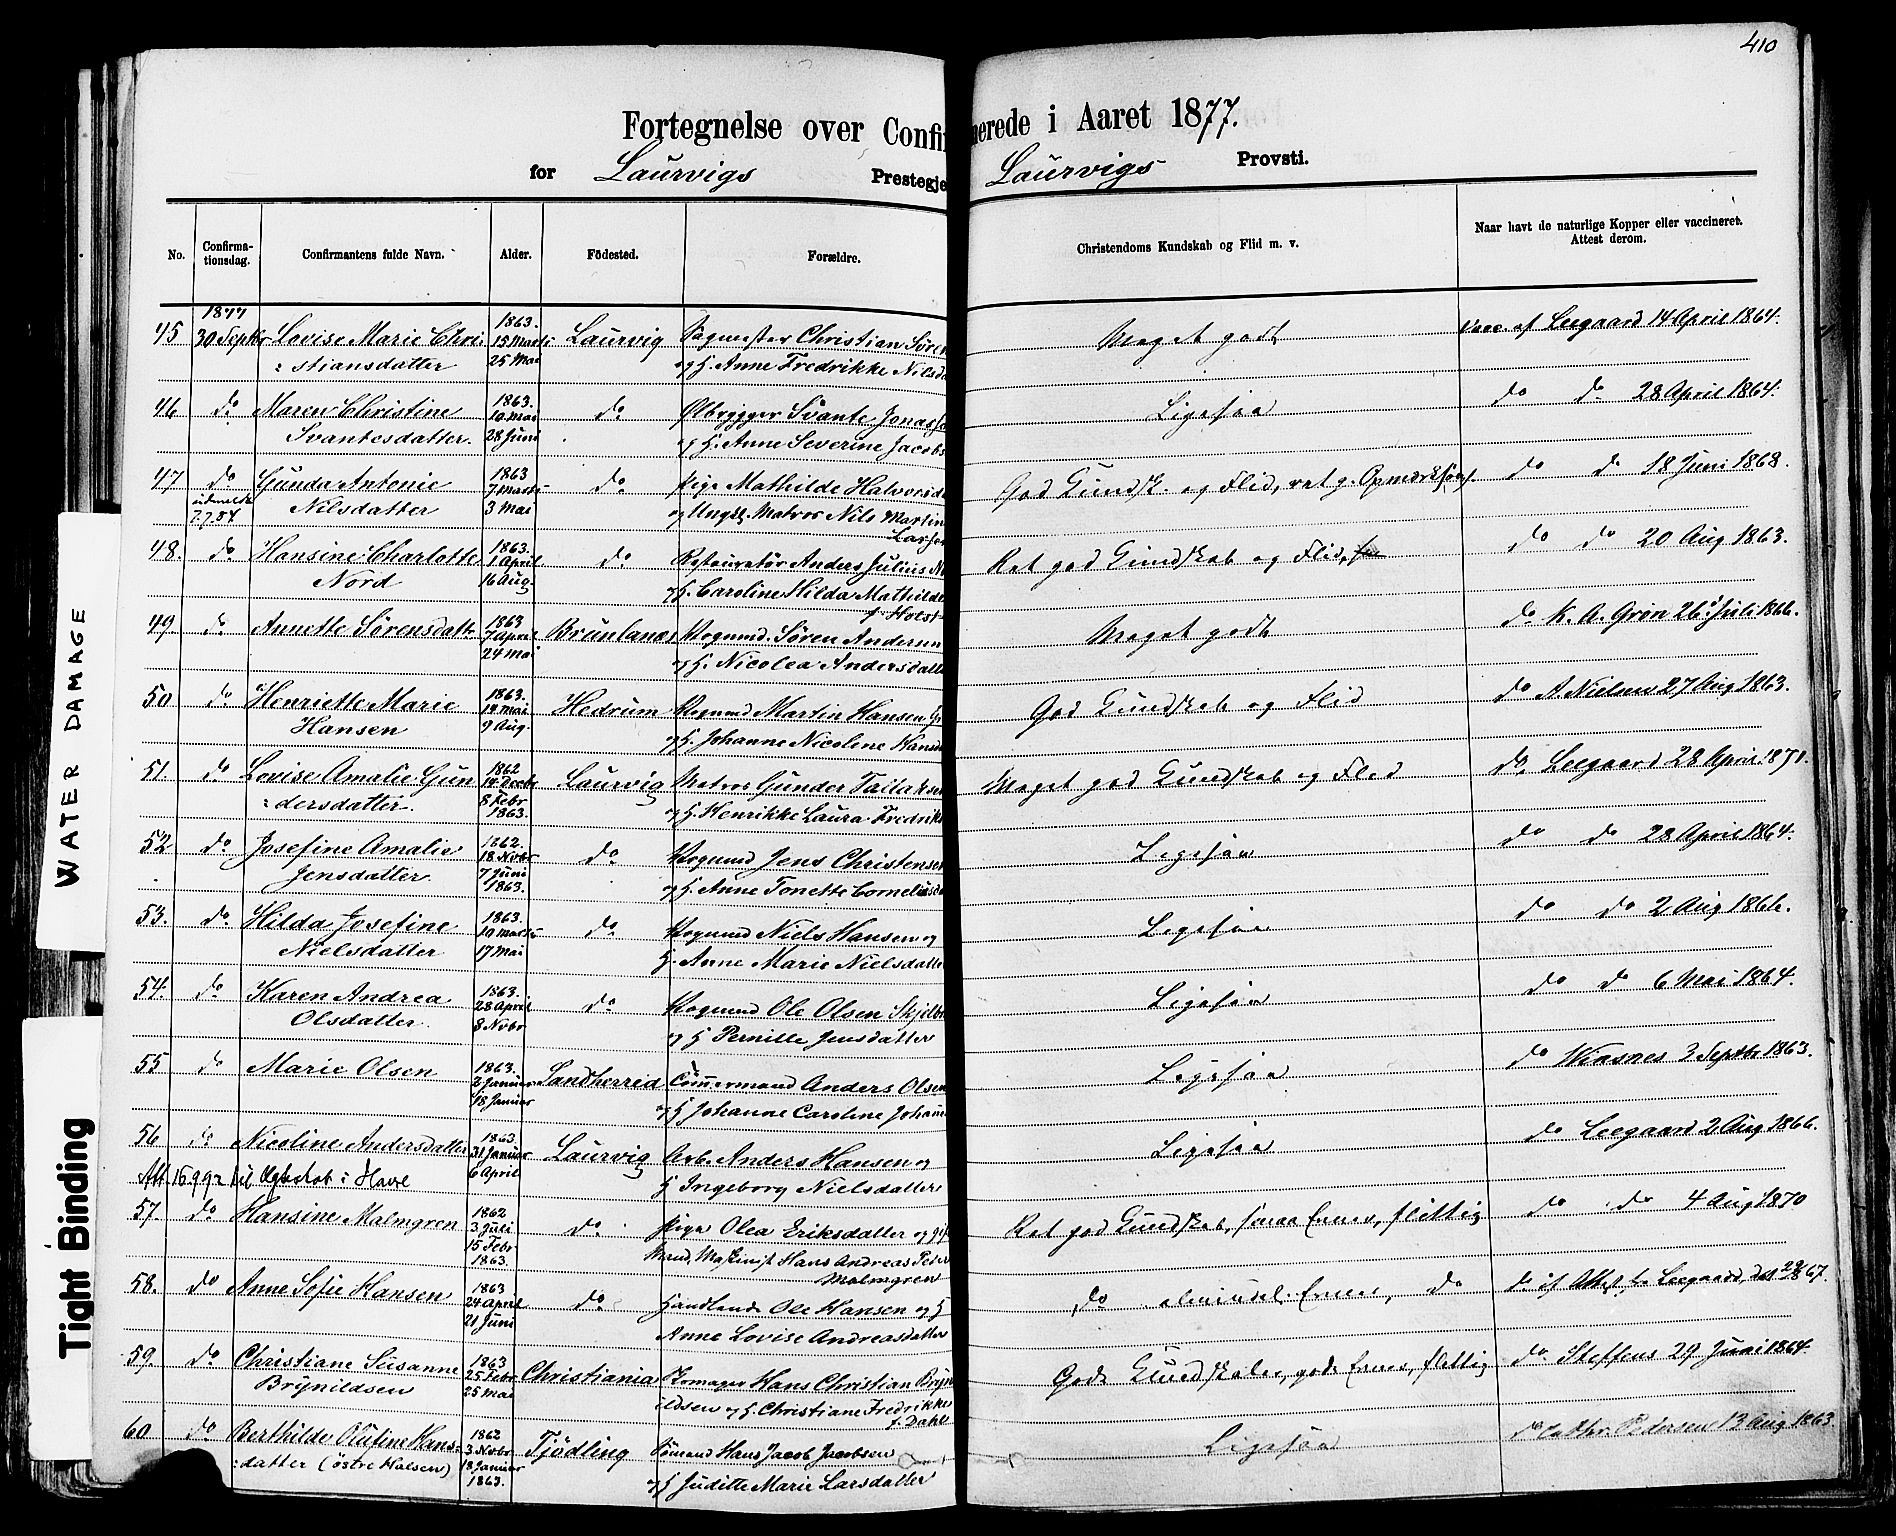 410
Fortegnelse over Confir
merede i Aaret 1877.
for Laurvigs Prestegje
Laurvigs Provsti.
No. Confirma-tionsdag. Confirmantens fulde Navn. Alder. Födested. Forældre. Christendoms Kundskab og Flid m. v. Naar havt de naturlige Kopper eller vaccineret. Attest derom.
1877 1863.
45 30 Septbr Lovise Marie Chri= 15 Marts Laurvig Christian Sören Meget godt Vacc. af Leegaard 14 April 1864.
=stiansdatter 25 Mai og H. Anne Fredrikke Nilsd
1863.
46 do Maren Christine 10 Mai do Ølbrygger Svante Jonass Ligesaa do do 28 April 1864.
Svantesdatter. 28 Juni og H. Anne Severine Jacobs
1863
47 do Gunda Antonie 7 Marts do Pige Mathilde Halvorsd God Kundsk. og Flid, ret g. Opmærksomh. do do 18 Juni 1868.
udmeldt 7.7.84 Nilsdatter 3 Mai og Ungk. Matros Nils Martin
Larsen
1863.
48. do Hansine Charlotte 1 April do Restauratör Anders Julius N Ret god Kundskab og Flid, do do 20 Aug 1863.
Nord 16 Aug. og H. Caroline Hilda Mathilde
f. Holst
1863
49 do Annette Sørensdattr 7 April Brunlanæs Søren Andersen Meget godt do K. A. Grøn 26 Juli 1866.
24 Mai og H. Nicolea Andersdatter
1863.
50 do Henriette Marie 14 Mai Hedrum Martin Hansen God Kundskab og Flid do A Nielsen 27 Aug 1863.
Hansen 9 Aug. og H. Johanne Nicolene Hansd
1862
51 do Lovise Amalie Gun 14 Decbr Laurvig Matros Gunder Tallaksen Meget god Kundskab og Flid do. Leegaard 28 April 1871.
=dersdatter. 8 Febr og H. Henrikke Laura Fredrik
1863.
1862.
52 do Josefine Amalie 18 Novbr do Jens Christensen Ligesaa do do 28 April 1864.
Jensdatter 7 Juni og H. Anne Tonette Cornelius
1863.
1863.
53. do. Hilda Josefine 10 Marts do Niels Hansen og Ligesaa do do 2 Aug 1866.
Nielsdatter 17 Mai H. Anne Marie Nielsdatter
1863.
54. do Karen Andrea 28 April do. Ole Olsen Skjelb Ligesaa do do 6 Mai 1864.
Olsdatter. 8 Novbr og H Pernille Jensdatter
1863.
55 do Marie Olsen 2 Januar Sandherred Tömmermand Anders Olsen Ligesaa do Wiasnes 3 Septbr 1863.
18 Januar og H Johanne Caroline Johann
1863.
56 do Nicoline Andersdatter 31 Januar Laurvig Arb. Anders Hansen og Ligesaa do Leegaard 2 Aug 1866.
Att. 15.9.92 til Ægteskab i 6 April H Ingeborg Nielsdatter
1862
57. do Hansine Malmgren 3 Juli do. Pige Olea Eriksdatter og gift Ret god Kundskab, smaa Evner, flittig do do 4 Aug 1870
15 Febr Mand, Maskinist Hans Andreas Peter
1863. Malmgren
1863
58. do Anne Sofie Hansen 24 April do. Handlende Ole Hansen og H do almindel. Evner, do do if. Attest fra Leegaard,
21 Juni Anne Lovise Andreasdatter
1863
59. do Christiane Susanne 25 Febr Christiania Skomager Hans Christian Bryn Gode Kundskaber, gode Evner, flittig do. Steffens 29 Juni 1864.
Brynildsen 25 Mai =ildsen og H. Christiane Fredrikke
f. Dahl
1862
60 do Berthilde Olufine Hans= 3 Novbr Tjödling Sömand Hans Jacob Jacobsen Ligesaa do Cathr. Pedersen 13 Aug 1863.
=datter (östre Halsen) 18 Januar og H Juditte Marie Larsdatter
1863.
WATER DAMAGE
Tight Binding